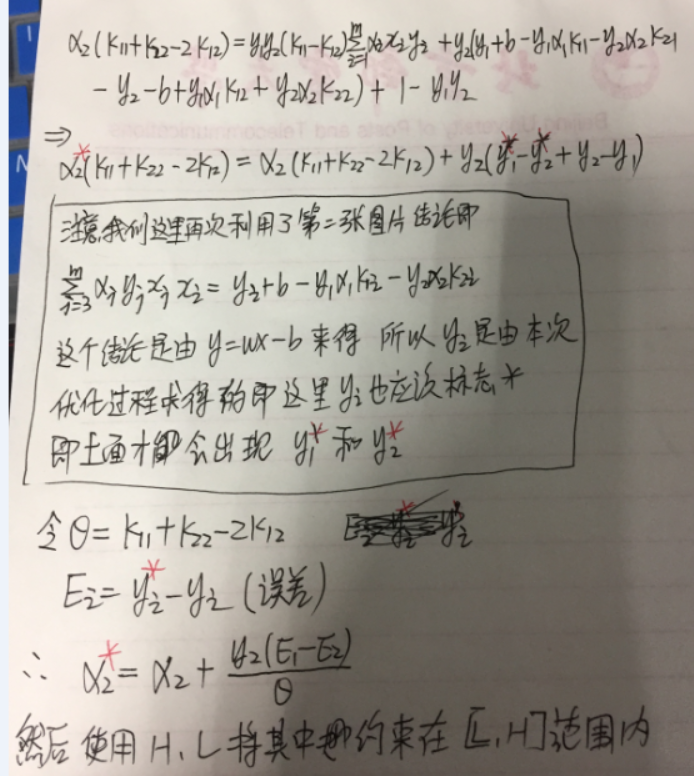 α₂(K₁₁+K₂₂-2K₁₂)=y₁y₂(K₁₁-K₁₂)∑ᵢ₌₁ᵐ αᵢxᵢy₂ + y₂(y₁+b-y₁α₁K₁₁-y₂α₂K₂₁
-y₂-b+y₁α₁K₁₂+y₂α₂K₂₂)+1-y₁y₂
⇒
α₂*(K₁₁+K₂₂-2K₁₂)=α₂(K₁₁+K₂₂-2K₁₂)+y₂(y₁*-y₂*+y₂-y₁)
注意我们这里再次利用了第二张图片结论即
∑ⱼ₌₃ᵐ αⱼyⱼxⱼxᵢ=y₂+b-y₁α₁K₁₂-y₂α₂K₂₂
这个结论是由y=wx-b来得 所以yᵢ是由本次
优化过程求得的即这里yᵢ也应该标志*
即上面才都会出现 y₁*和y₂*
令θ=K₁₁+K₂₂-2K₁₂
Eᵢ=yᵢ*-yᵢ(误差)
∴ α₂*=α₂+y₂(E₁-E₂)/θ
然后使用H、L将其中约束在[L,H]范围内